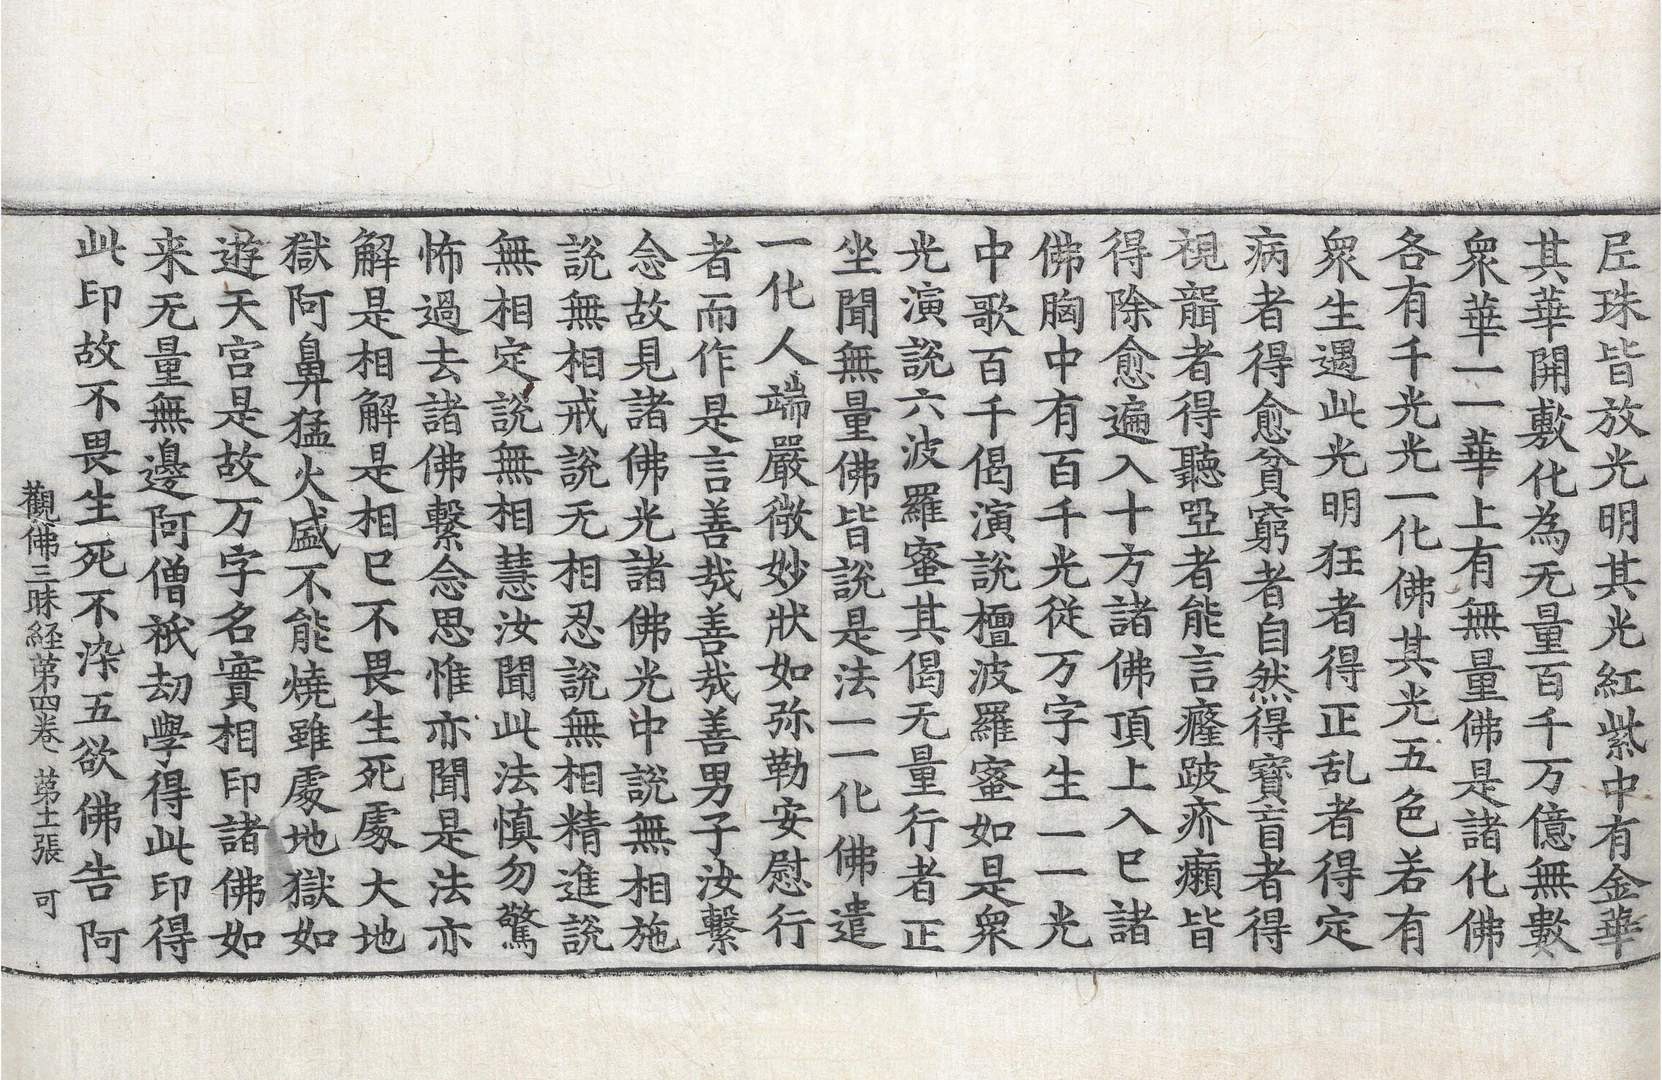 尼珠皆放光明其光紅紫中有金華
其華開敷化為无量百千万億無數
衆華一一華上有無量佛是諸化佛
各有千光光一化佛其光五色若有
衆生遇此光明狂者得正乱者得定
病者得愈貧窮者自然得寶盲者得
視聾者得聽啞者能言癃跛疥癩皆
得除愈遍入十方諸佛頂上入已諸
佛胸中有百千光従万字生一一光
中歌百千偈演說檀波羅蜜如是衆
光演說六波羅蜜其偈无量行者正
坐聞無量佛皆說是法一一化佛遣
一化人端嚴微妙狀如弥勒安慰行
者而作是言善哉善哉善男子汝繫
念故見諸佛光諸佛光中說無相施
說無相戒說无相忍說無相精進說
無相定說無相慧汝聞此法慎勿驚
怖過去諸佛繫念思惟亦聞是法亦
解是相解是相已不畏生死處大地
獄阿鼻猛火盛不能燒雖處地獄如
遊天宫是故万字名實相印諸佛如
来无量無邊阿僧祇劫學得此印得
此印故不畏生死不染五欲佛告阿
觀佛三昧経苐四卷 苐十一張 可